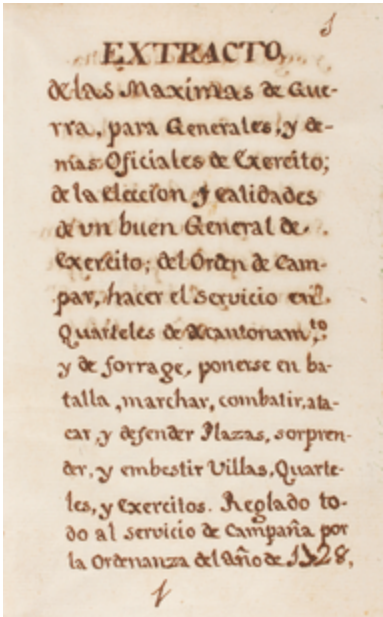 1
EXTRACTO,
de las Maximas de Gue-
rra, para Generales, y de-
mas Oficiales de Exercito;
de la Eleccion y Calidades
de un buen General de
Exercito; del Orden de Cam-
par, hacer el servicio en
Quarteles de Acantonam.to
y de forrage, ponerse en ba-
talla, marchar, combatir, ata-
car, y defender Plazas, sorpren-
der, y embestir Villas, Quarte-
les, y Exercitos. Reglado to-
do al servicio de Campaña por
la Ordenanza del Año de 1728,